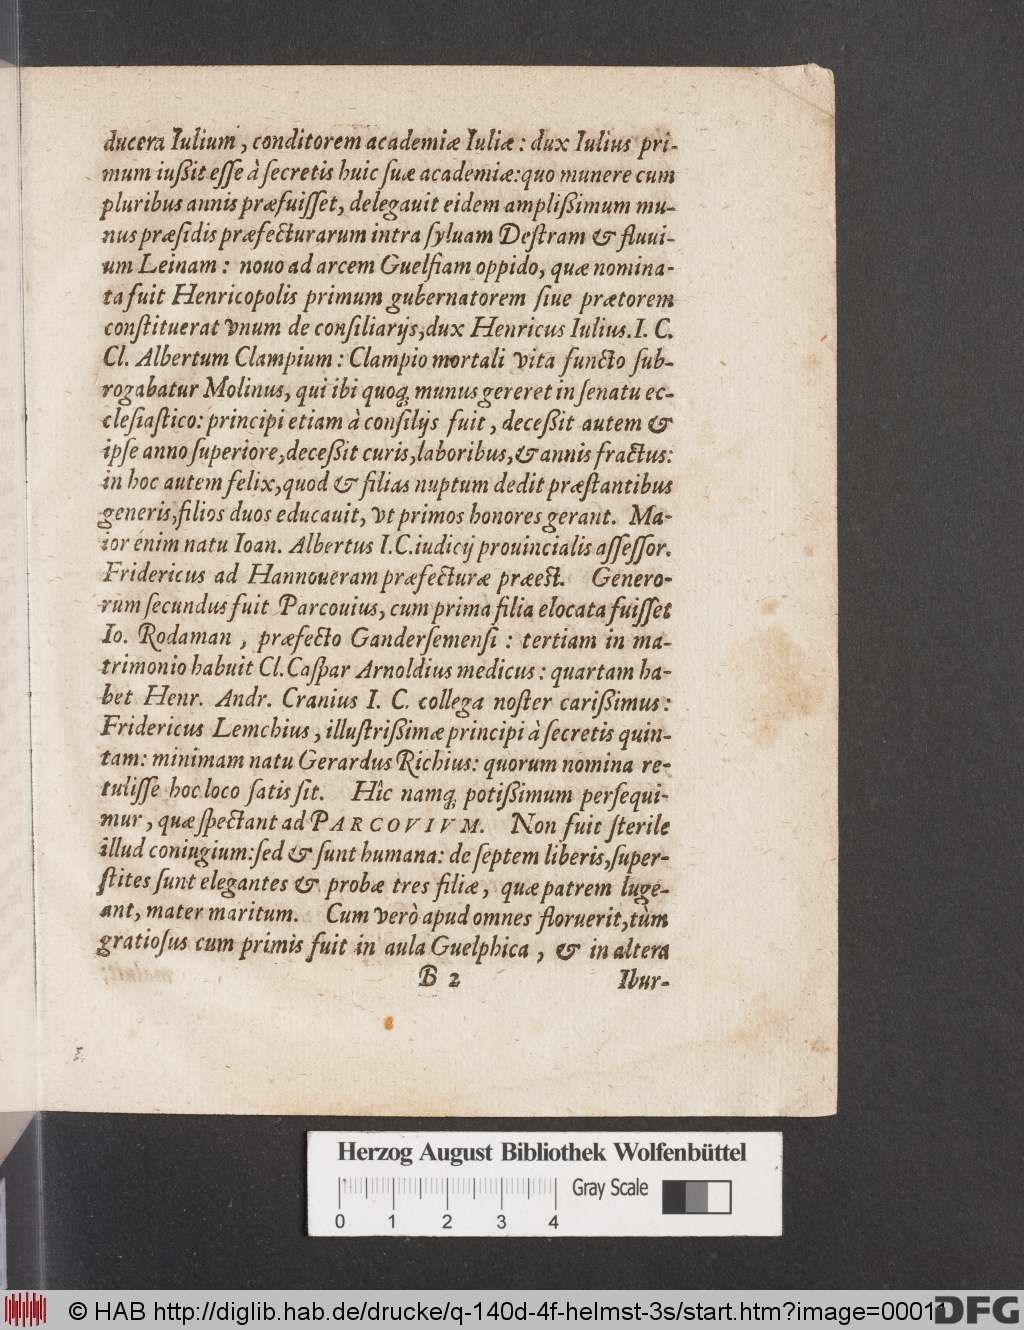 ducera Iulium, conditorem academiæ Iuliæ: dux Iulius pri-
mum iußit eſſe à ſecretis huic ſuæ academiæ: quo munere cum
pluribus annis præfuiſſet, delegauit eidem amplißimum mu-
nus præſidis præfecturarum intra ſyluam Deſtram & fluui-
um Leinam: nouo ad arcem Guelfiam oppido, quæ nomina-
ta fuit Henricopolis primum gubernatorem ſiue prætorem
conſtituerat vnum de conſiliarijs, dux Henricus Iulius. I. C.
Cl. Albertum Clampium: Clampio mortali vita functo ſub-
rogabatur Molinus, qui ibi quoq; munus gereret in ſenatu ec-
cleſiaſtico: principi etiam à conſilijs fuit, deceßit autem &
ipſe anno ſuperiore, deceßit curis, laboribus, & annis fractus:
in hoc autem felix, quod & filias nuptum dedit præſtantibus
generis, filios duos educauit, vt primos honores gerant. Ma-
ior enim natu Ioan. Albertus I. C. iudicij prouincialis aſſeſſor.
Fridericus ad Hannoueram præfecturæ præeſt. Genero-
rum ſecundus fuit Parcouius, cum prima filia elocata fuiſſet
Io. Rodaman, præfecto Ganderſemenſi: tertiam in ma-
trimonio habuit Cl. Caſpar Arnoldius medicus: quartam ha-
bet Henr. Andr. Cranius I. C. collega noſter carißimus:
Fridericus Lemchius, illuſtrißimæ principi à ſecretis quin-
tam: minimam natu Gerardus Richius: quorum nomina re-
tuliſſe hoc loco ſatis ſit. Hîc namq; potißimum perſequi-
mur, quæ ſpectant ad PARCOVIVM. Non fuit ſterile
illud coniugium: ſed & ſunt humana: de ſeptem liberis, ſuper-
ſtites ſunt elegantes & probæ tres filiæ, quæ patrem luge-
ant, mater maritum. Cum verò apud omnes floruerit, tùm
gratioſus cum primis fuit in aula Guelphica, & in altera
B 2 Ibur-
Herzog August Bibliothek Wolfenbüttel
Gray Scale
0 1 2 3 4
© HAB http://diglib.hab.de/drucke/q-140d-4f-helmst-3s/start.htm?image=00011
DFG